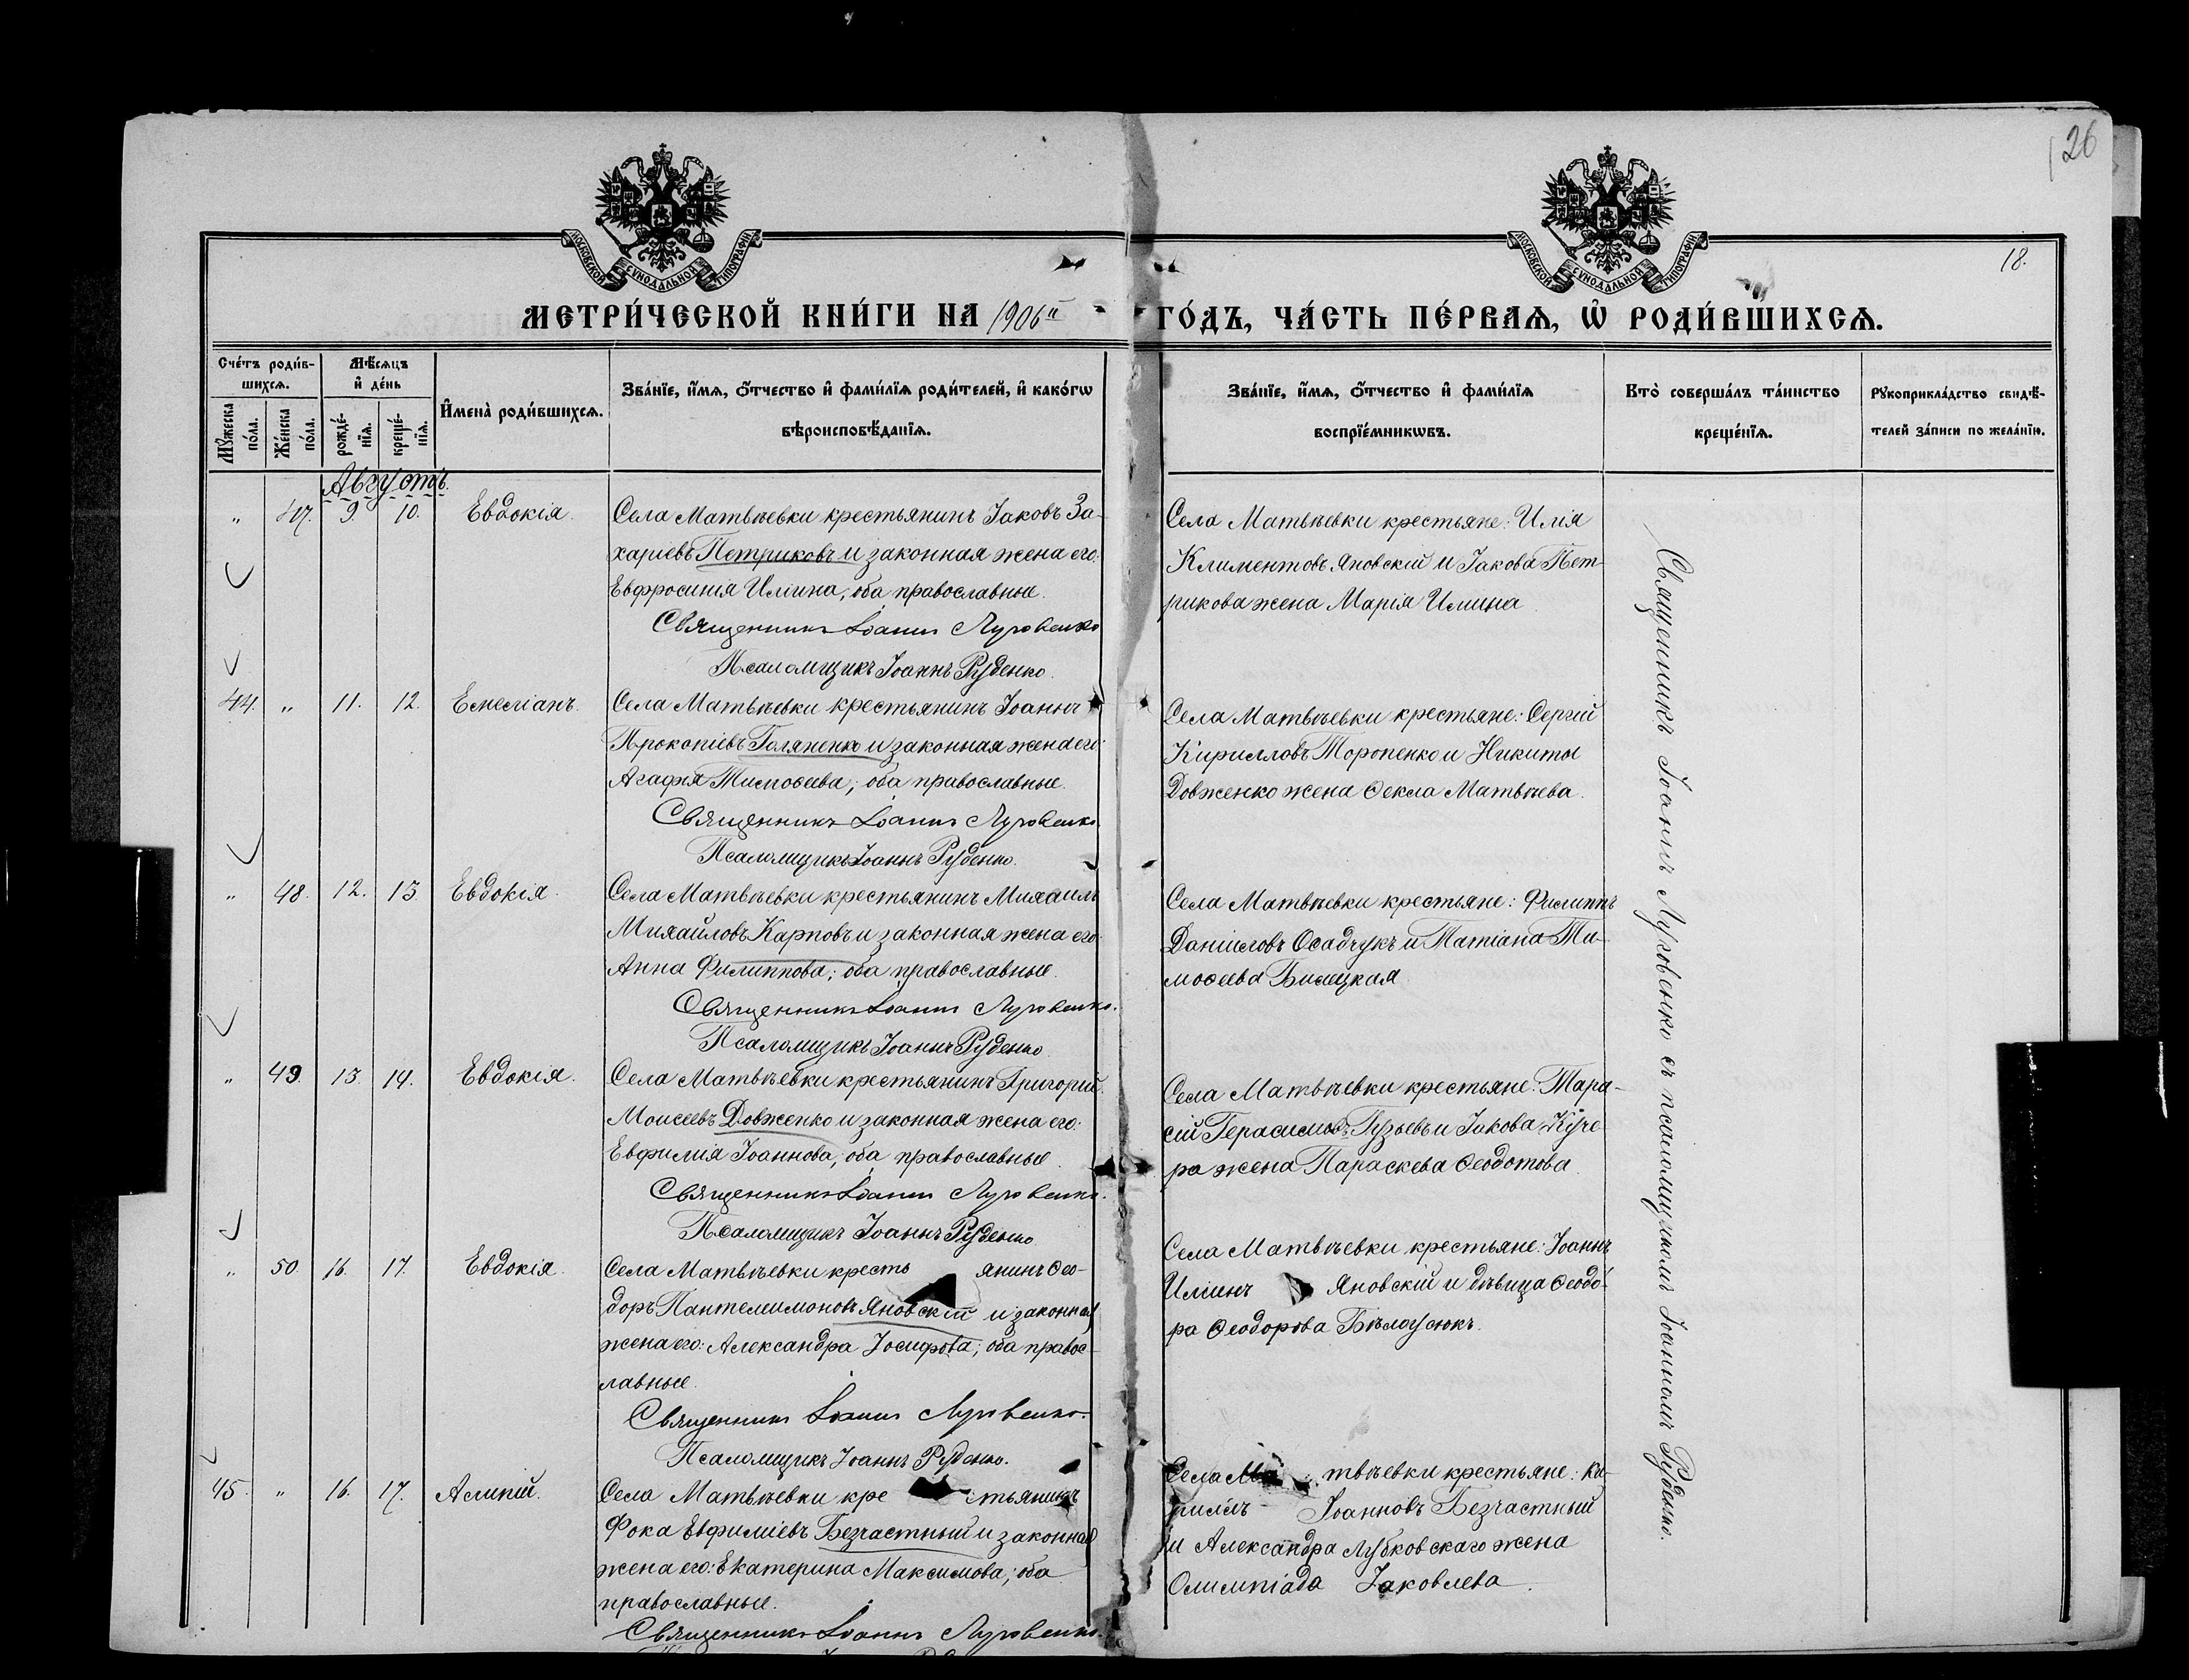 26
18.
МОСКОВСКОЙ СѴНОДАЛЬНОЙ ТИПОГРАФІИ
МОСКОВСКОЙ СѴНОДАЛЬНОЙ ТИПОГРАФІИ
МЕТРИ́ЧЕСКОЙ КНИ́ГИ НА 1906й ГО́ДЪ, ЧА́СТЬ ПЕ́РВАѦ, Ѽ РОДИ́ВШИХСѦ.
Сче́тъ роди́в-
шихсѧ.
Мꙋ́жеска по́ла.
Же́нска по́ла.
Мѣ́сѧцъ
и҆ де́нь
рожде́-
нїѧ.
креще́-
нїѧ.
И҆мена̀ роди́вшихсѧ.
Зва́нїе, и҆́мѧ, ѻ҆́тчество и҆ фами́лїѧ роди́телей, и҆ како́гѡ
вѣроисповѣ́данїѧ.
Зва́нїе, и҆́мѧ, ѻ҆́тчество и҆ фами́лїѧ
воспрїе́мникѡвъ.
Кто̀ соверша́лъ та́инство
креще́нїѧ.
Рꙋкоприкла́дство свидѣ́-
телей за́писи по жела́нїю.
Августъ.
" 47. 9. 10. Евдокія.
Села Матвѣевки крестьянинъ Іаковъ За-
харіевъ Петриковъ и законная жена его:
Евфросинія Иліина, оба православные.
Священникъ Іоаннъ Луговенко
Псаломщикъ Іоаннъ Руденко.
Села Матвѣевки крестьяне: Илія
Климентовъ Яновскій и Іакова Пет-
рикова жена Марія Илиина
44. " 11. 12. Емеліанъ.
Села Матвѣевки крестьянинъ Іоаннъ
Прокопіевъ Голяненко и законная жена его:
Агафія Тимоѳеева; оба православные.
Священникъ Іоаннъ Луговенко.
Псаломщикъ Іоаннъ Руденко.
Села Матвѣевки крестьяне: Сергій
Кирилловъ Торопенко и Никиты
Довженко жена Ѳекла Матвѣева.
" 48. 12. 13. Евдокія.
Села Матвѣевки крестьянинъ Михаилъ
Михайловъ Карповъ и законная жена его:
Анна Филиппова; оба православные.
Священникъ Іоаннъ Луговенко.
Псаломщикъ Іоаннъ Руденко
Села Матвѣевки крестьяне: Филиппъ
Даніиловъ Осадчукъ и Татіана Ти-
моѳеева Билецкая
" 49. 13. 14. Евдокія.
Села Матвѣевки крестьянинъ Григорій
Моисеевъ Довженко и законная жена его:
Евфимія Іоаннова; оба православные
Священникъ Іоаннъ Луговенко.
Псаломщикъ Іоаннъ Руденко
Села Матвѣевки крестьяне: Тара-
сій Герасимовъ Гузьевъ и Іакова Куче-
ра жена Параскева Ѳеодотова
" 50. 16. 17. Евдокія.
Села Матвѣевки кресть янинъ Ѳео-
доръ Пантелимоновъ Яновскій и законная
жена его: Александра Іосифова; оба правос-
лавные.
Священникъ Іоаннъ Луговенко.
Псаломщикъ Іоаннъ Руденко.
Села Матвѣевки крестьяне: Іоаннъ
Иліинъ Яновскій и дѣвица Ѳеодо-
ра Ѳеодорова Бѣлоусюкъ.
45. " 16. 17. Алипій.
Села Матвѣевки кре стьянинъ
Фока Евфиміевъ Безчастный и законная
жена его: Екатерина Максимова; оба
православные.
Священникъ Іоаннъ Луговенко.
Села Ма твѣевки крестьяне: Ки-
риллъ Іоанновъ Безчастный
и Александра Лубковскаго жена
Олимпіада Іаковлева.
Священникъ Іоаннъ Луговенко съ псаломщикомъ Іоанномъ Руденко.